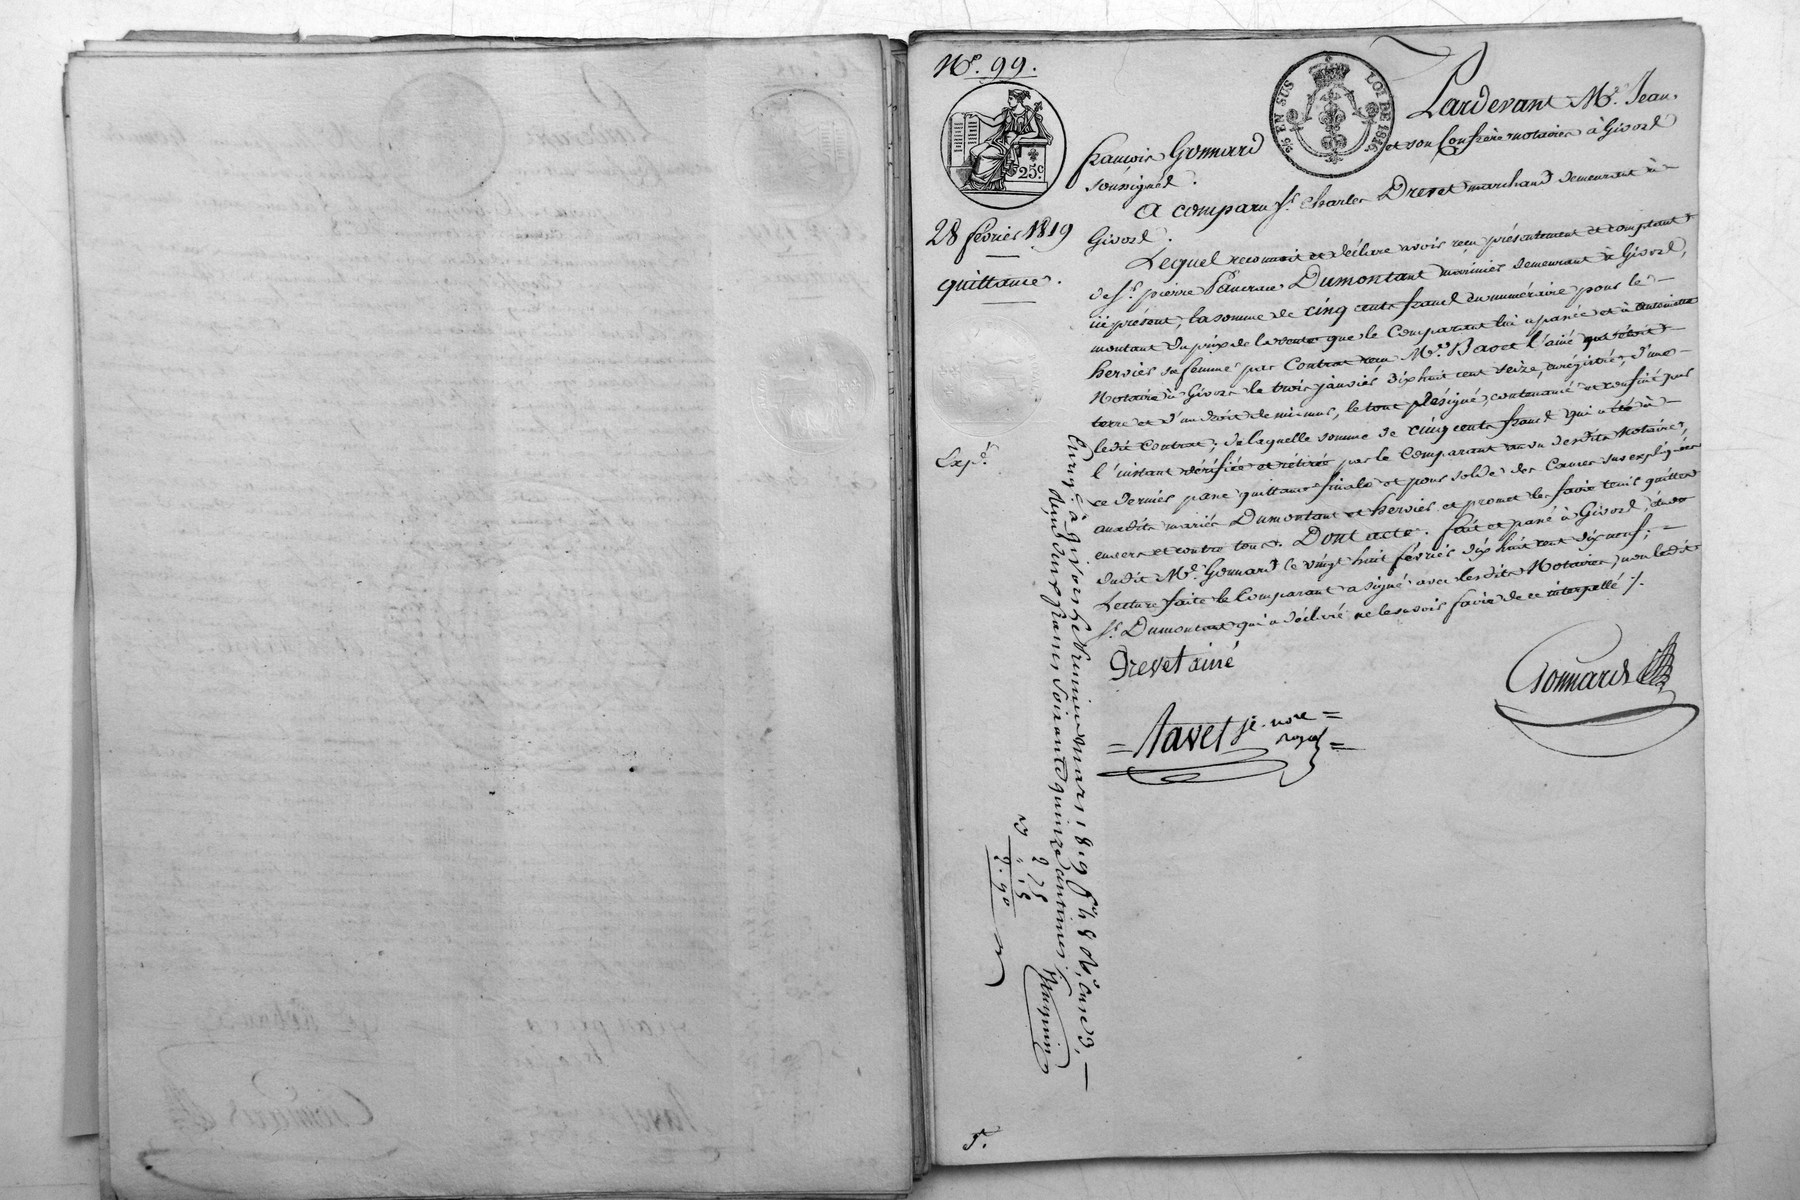 N.º 99.
25 EN SUS LOI DE 1816.
25.c
28 février 1819
quittance.
Exp.é
Pardevant M.e Jean
françois Gonnard et son Confrère notaires à Givord
soussignés.
A comparu s.r Charles Drevet marchand demeurant à
Givord.
Lequel reconnait et déclare avoir reçu présentement et comptant
de s.r pierre Pancrace Dumontant marinier demeurant à Givord,
ici présent, la somme de cinq cents francs en numéraire pour le
montant du prix de la vente que le Comparant lui a passée et à antoinette
hervier sa femme par Contrat reçu M.e Bacet l'ainé
Notaire à Givors le trois janvier dix huit cent seize, enrégistré, d'une
terre et d'un droit de le tout désigné, contenancé et confiné par
ledit Contrat; de laquelle somme de cinq cents francs qui a été à
l'instant vérifiée et rétirée par le Comparant au vu desdits Notaires,
ce dernier passe quittance finale et pour solde des Causes sus expliquées
auxdits mariés Dumontant et hervier et promet les faire tenir quittes
envers et contre tous. Dont acte. fait et passé à Givord, étude
dudit M.e Gonnard le vingt huit février dix huit cent dix neuf;
Lecture faite le Comparant a signé avec lesdits Notaires, non ledit
s.r Dumontant qui a déclaré ne le savoir faire de ce interpellé ./.
Drevet ainé
Gonnard
= Navet je. nore =
royal =
Enreg.é à Givors le Premier mars 1819 f.o 48 R.o, Case 3,
Reçu deux francs soixante quinze centimes.
2 75
15
2.90
5.